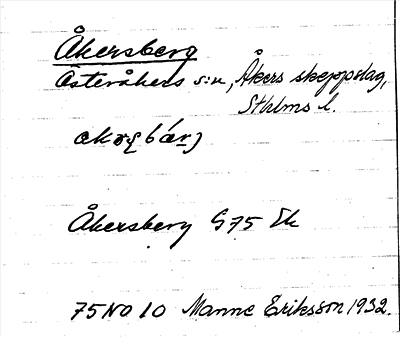 Åkersberg
Österåkers s:n, Åkers skeppslag,
Sthlms l.
Åkersberg G75 Ek
75 NO 10 Manne Eriksson 1932.